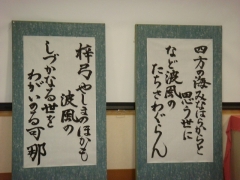 四方の海みなはらからと
思う世に
など波風の
たちさわぐらん
梓弓やしまのほかも
波風の
しづかなる世を
わがいのる可那